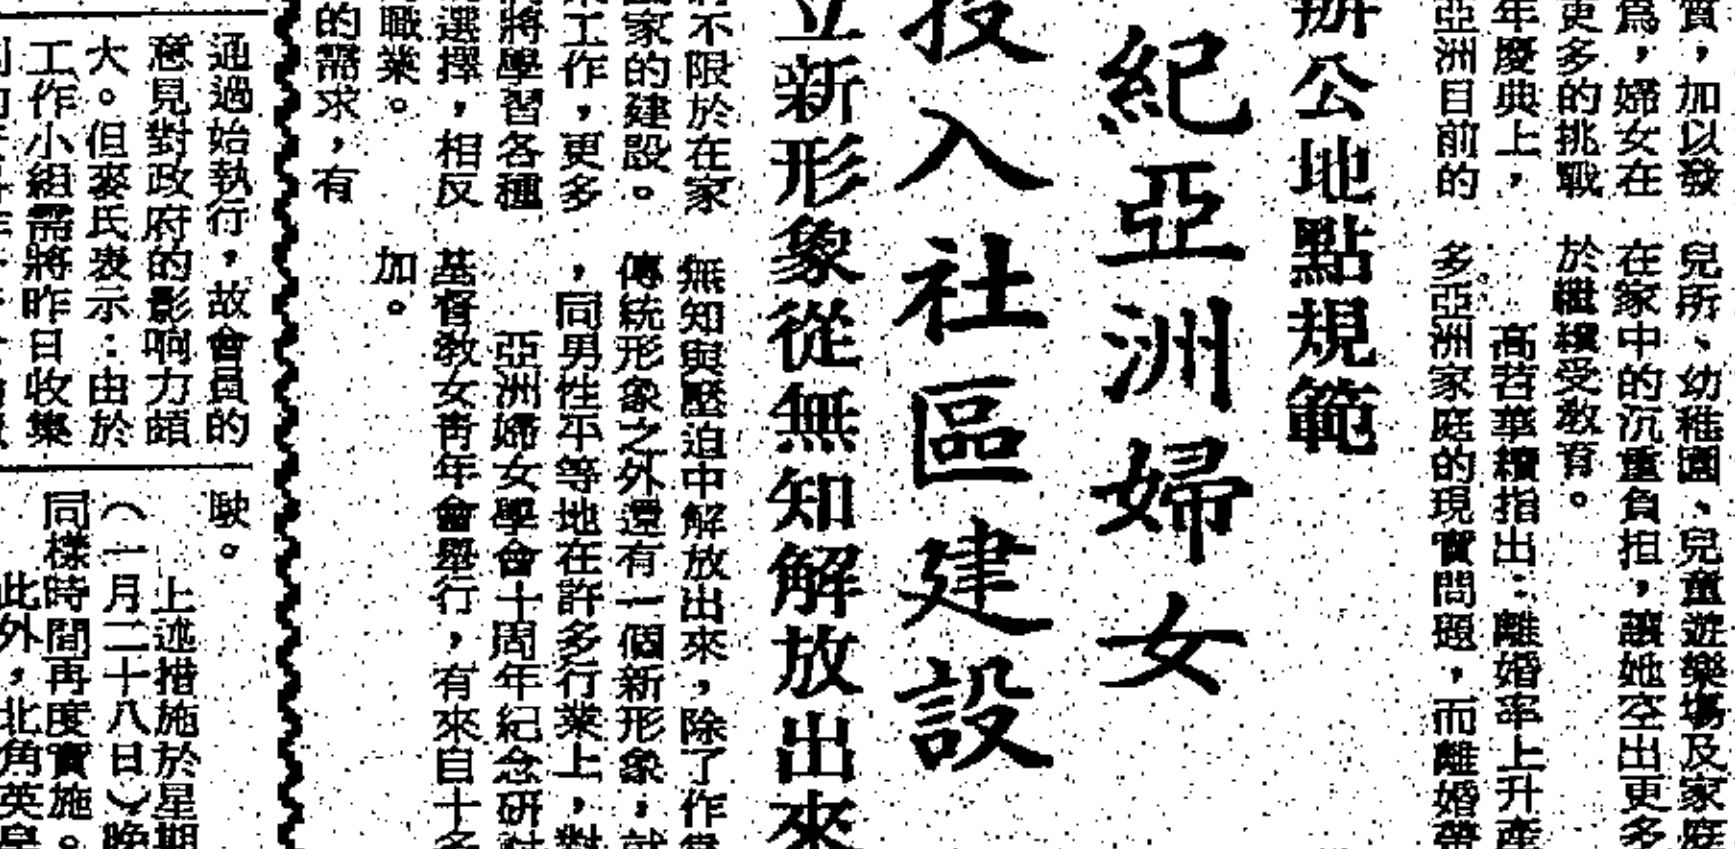 質，加以發
為，婦女在
更多的挑戰
年慶典上，
亞洲目前的
兒所、幼稚園、兒童遊樂場及家庭
在家中的沉重負担，讓她空出更多
於繼續受教育。
高苕華續指出：離婚率上升產
多亞洲家庭的現實問題，而離婚帶
辦公地點規範
紀亞洲婦女
投入社區建設
立新形象從無知解放出來
不限於在家
家的建設。
工作，更多
將學習各種
選擇，相反
職業。
的需求，有
無知與壓迫中解放出來，除了作為
傳統形象之外還有一個新形象，就
，同男性平等地在許多行業上，對
亞洲婦女學會十周年紀念研討
基督教女青年會舉行，有來自十多
加。
通過始執行，故會員的
意見對政府的影响力頗
大。但麥氏表示：由於
工作小組需將昨日收集
駛。
上述措施於星期
（一月二十八日）晚
同樣時間再度實施。
此外，北角英皇